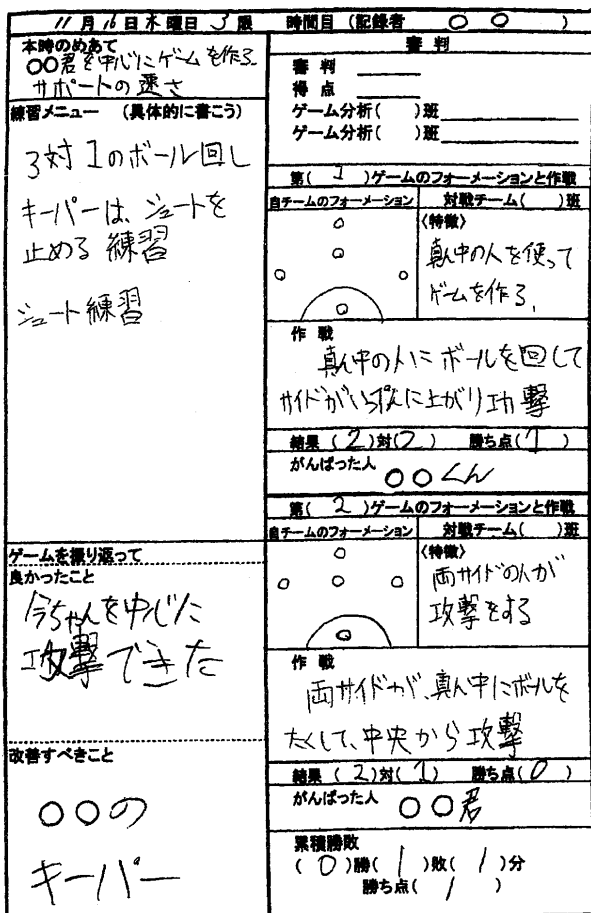 11月16日木曜日 3限 時間目（記録者 ○ ○ ）
本時のめあて
○○君を中心にゲームを作る
サポートの速さ
練習メニュー （具体的に書こう）
3対1のボール回し
キーパーは、シュートを
止める練習
シュート練習
ゲームを振り返って
良かったこと
今ちゃんを中心に
攻撃できた
改善すべきこと
○○の
キーパー
審 判
審 判
得 点
ゲーム分析( )班
ゲーム分析( )班
第( 1 )ゲームのフォーメーションと作戦
自チームのフォーメーション 対戦チーム( )班
〈特徴〉
真ん中の人を使って
ゲームを作る、
作 戦
真ん中の人にボールを回して
サイドがいっぱんに上がり攻撃
結果 ( 2 )対( 2 ) 勝ち点( 1 )
がんばった人
○○くん
第( 2 )ゲームのフォーメーションと作戦
自チームのフォーメーション 対戦チーム( )班
〈特徴〉
両サイドの人が
攻撃をする
作 戦
両サイドが、真ん中にボールを
たくして、中央から攻撃
結果 ( 2 )対( 1 ) 勝ち点( 0 )
がんばった人 ○○君
累積勝敗
( 0 )勝( 1 )敗( 1 )分
勝ち点( 1 )